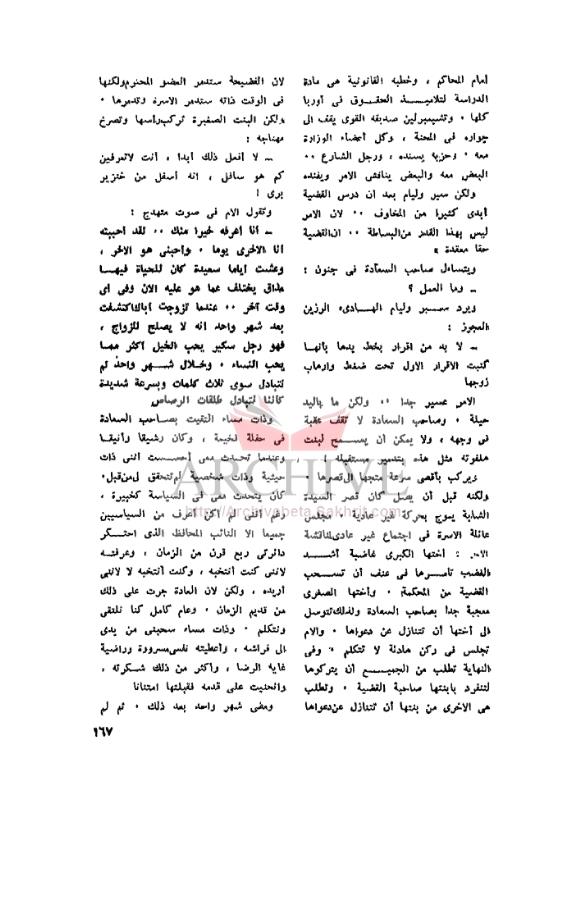 أمام المحاكم ، وخطبه القانونية هى مادة
الدراسة لتلاميذ الحقوق فى أوربا
كلها • وتشيمبرلين صديقه القوى يقف الى
جواره فى المحنة ، وكل أعضاء الوزارة
معه • وحزبه يسنده ، ورجل الشارع ••
البعض معه والبعض يناقش الامر ويفنده
ولكن سير وليام بعد ان درس القضية
أبدى كثيرا من المخاوف •• لان الامر
ليس بهذا القدر من البساطة •• ان القضية
حقا معقدة »
ويتساءل صاحب السعادة فى جنون :
ــ وما العمل ؟
ويرد سير وليام الهادىء الرزين
العجوز :
ــ لا به من اقرار بخط يدها بأنها
كتبت الاقرار الاول تحت ضغط وارهاب
زوجها
الامر عسير جدا •• ولكن ما باليد
حيلة • وصاحب السعادة لا تقف عقبة
فى وجهه ، ولا يمكن أن يسمح لبنت
ملعوفته مثل هذه بتدمير مستقبله !
ويركب بأقصى سرعة متجها الى قصرها •
ولكنه قبل أن يصل كان قصر السيدة
الشابة يموج بحركة غير عادية • مجلس
عائلة الاسرة فى اجتماع غير عادى لمناقشة
الامر : أختها الكبرى غاضبة أشد
الغضب تأمرها فى عنف أن تسحب
القضية من المحكمة • وأختها الصغرى
معجبة جدا بصاحب السعادة ولذلك تتوسل
الى أختها أن تتنازل عن دعواها • والام
تجلس فى ركن هادئة لا تتكلم • وفى
النهاية تطلب من الجميع أن يتركوها
لتنفرد بابنتها صاحبة القضية • وتطلب
هى الاخرى من بنتها أن تتنازل عن دعواها
لان الفضيحة ستدمر العضو المحترم ولكنها
فى الوقت ذاته ستدمر الاسرة وتدمرها •
ولكن البنت الصغيرة تركب رأسها وتصرخ
مهتاجه :
ــ لا أفعل ذلك أبدا ، أنت لا تعرفين
كم هو سافل ، انه أسفل من خنزير
برى !
وتقول الام فى صوت متهدج :
ــ أنا أعرفه خيرا منك •• لقد أحببته
أنا الاخرى يوما • وأحبنى هو الاخر ،
وعشت أياما سعيدة كان للحياة فيها
مذاق يختلف عما هو عليه الان وفى أى
وقت آخر •• عندما تزوجت أباك اكتشفت
بعد شهر واحد أنه لا يصلح للزواج ،
فهو رجل سكير يحب الخيل أكثر مما
يحب النساء • وخلال شهر واحد لم
نتبادل سوى ثلاث كلمات وبسرعة شديدة
كأننا نتبادل طلقات الرصاص
وذات مساء التقيت بصاحب السعادة
فى حفلة لخيمة ، وكان رشيقا وأنيقا
وعندما تحدث معى أحسست أننى ذات
حيثية وذات شخصية لم تتحقق لى من قبل•
كان يتحدث معى فى السياسة كخبيرة ،
رغم أننى لم أكن أعرف من السياسيين
جميعا الا النائب المحافظ الذى احتكر
دائرتى ربع قرن من الزمان ، وعرفته
لاننى كنت أنتخبه ، وكنت أنتخبه لا لاننى
أريده ، ولكن لان العادة جرت على ذلك
من قديم الزمان • وعام كامل كنا نلتقى
ونتكلم • وذات مساء سحبنى من يدى
الى فراشه ، وأعطيته نفسى مسرورة وراضية
غاية الرضا ، وأكثر من ذلك شكرته ،
وانحنيت على قدمه فقبلتها امتنانا
ومضى شهر واحد بعد ذلك • ثم لم
١٦٧
ARCHIVE
http://Archivebeta.Sakhrit.com